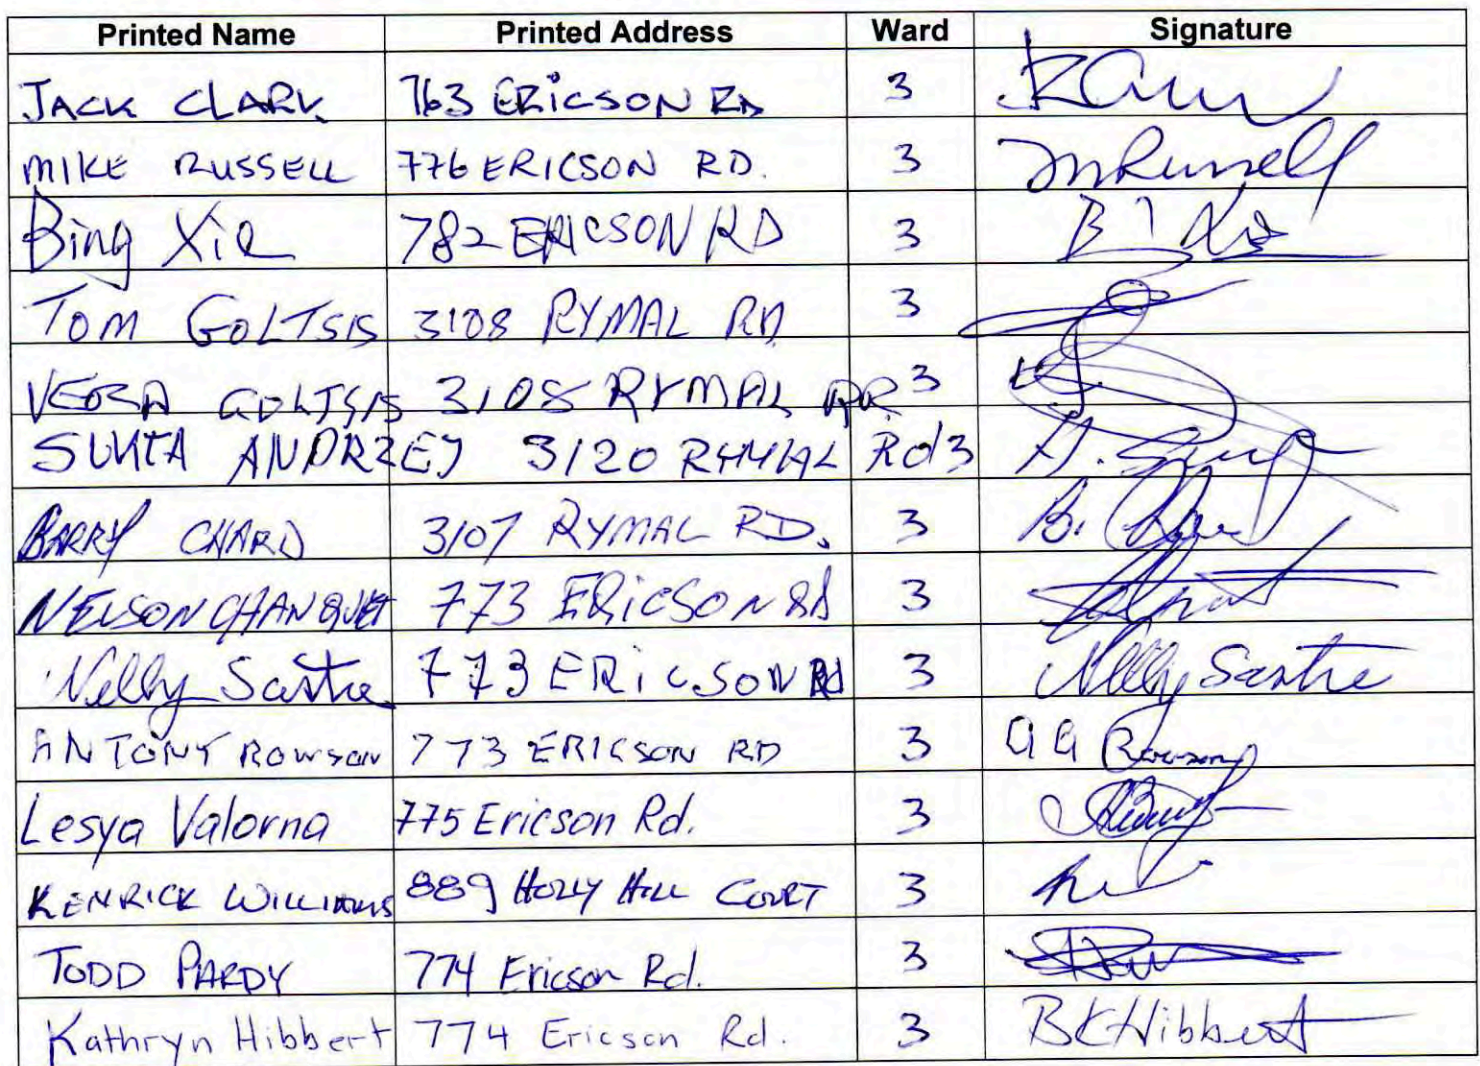 Printed Name Printed Address Ward Signature
JACK CLARK 763 ERICSON RD 3
MIKE RUSSELL 776 ERICSON RD. 3 M Russell
Bing Xie 782 ERICSON RD 3 B Xie
TOM GOLTSIS 3108 RYMAL RD 3
VERA GOLTSIS 3108 RYMAL RD 3
ANDRZEJ 3120 RYMAL Rd 3
BARRY CHARD 3107 RYMAL RD. 3 B. Chard
NELSON CHANQUET 773 ERICSON Rd 3
Nelly Sastre 773 ERICSON Rd 3 Nelly Sastre
ANTONY ROWSON 773 ERICSON RD 3 A A Rowson
Lesya Valorna 775 Ericson Rd. 3
KENRICK WILLIAMS 889 HOLLY HILL COURT 3
TODD PARDY 774 Ericson Rd. 3
Kathryn Hibbert 774 Ericson Rd. 3 BKHibbert